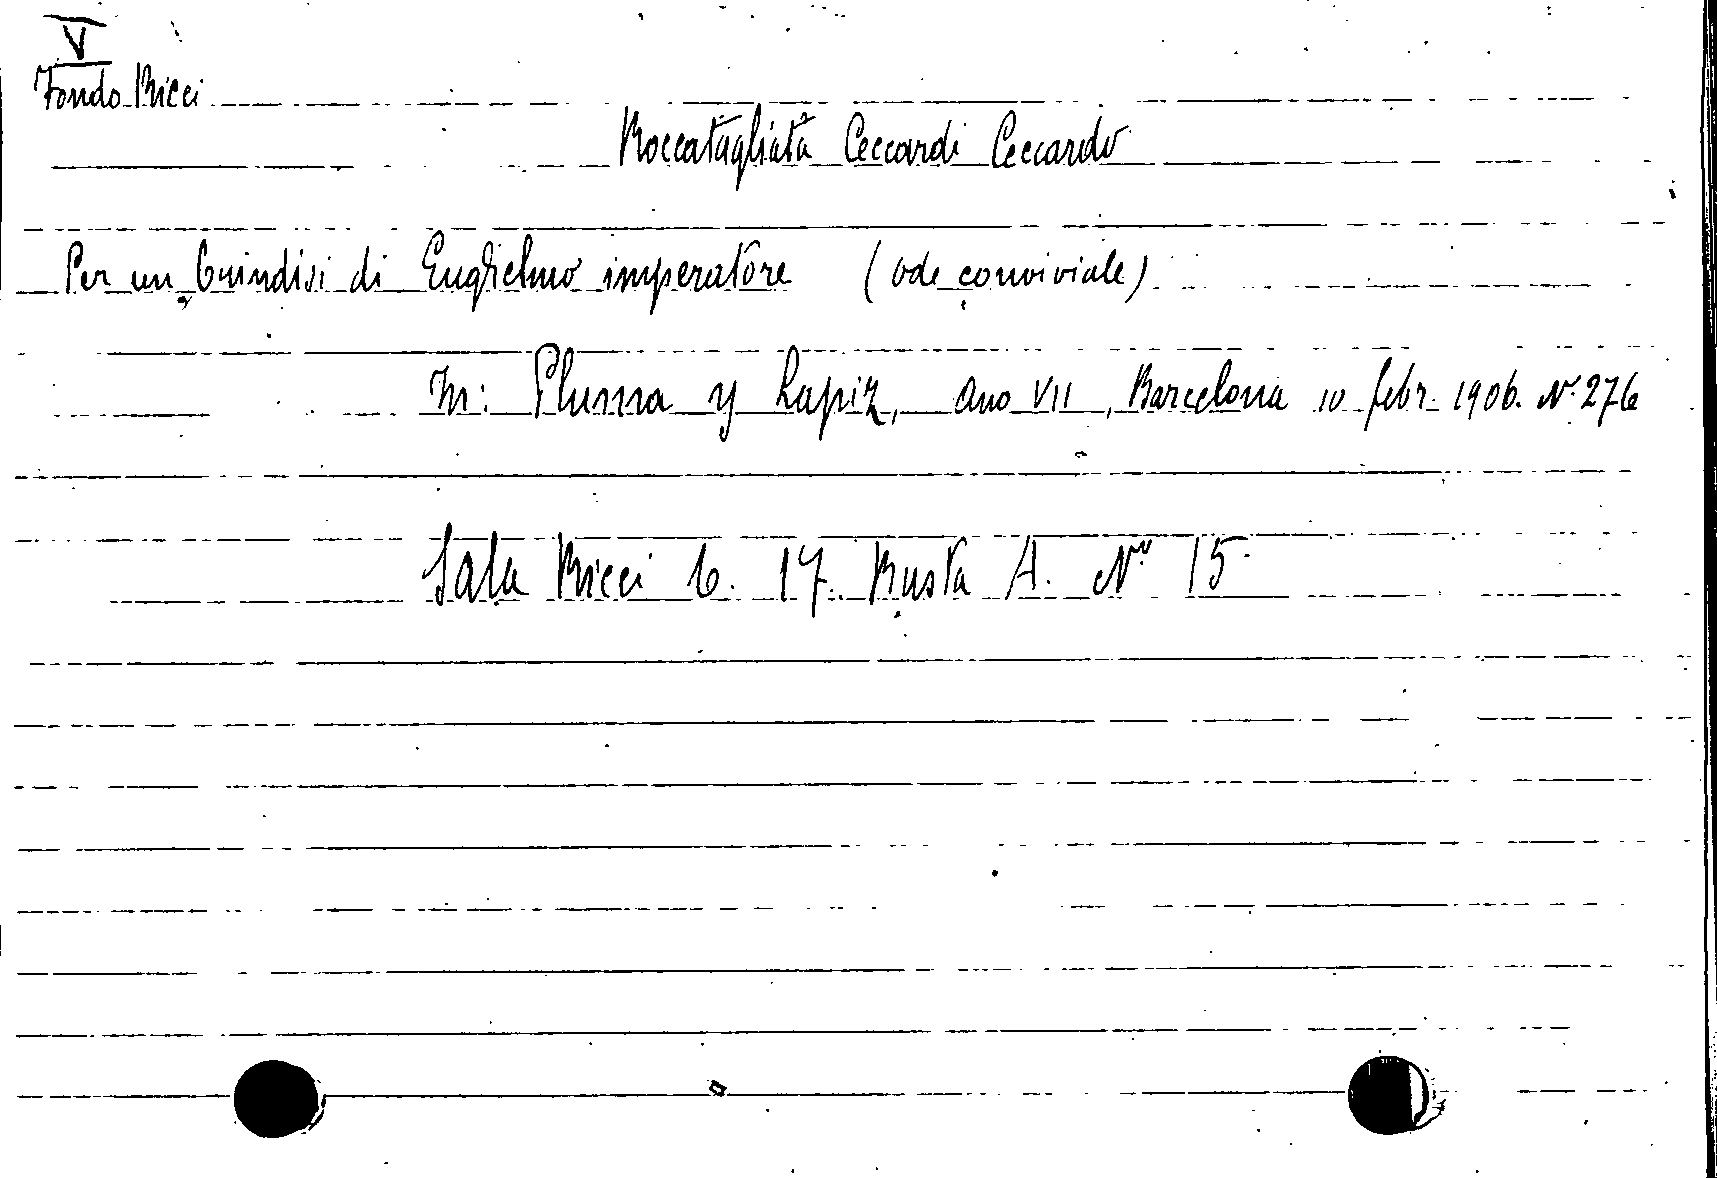 V
Fondo Ricci
Roccatagliata Ceccardi Ceccardo
Per un brindisi di Guglielmo imperatore (ode conviviale)
In: Pluma y Lapiz, Ano VII, Barcelona 10 febr. 1906. N. 276
Sala Ricci 6. 17. Busta A. No 15